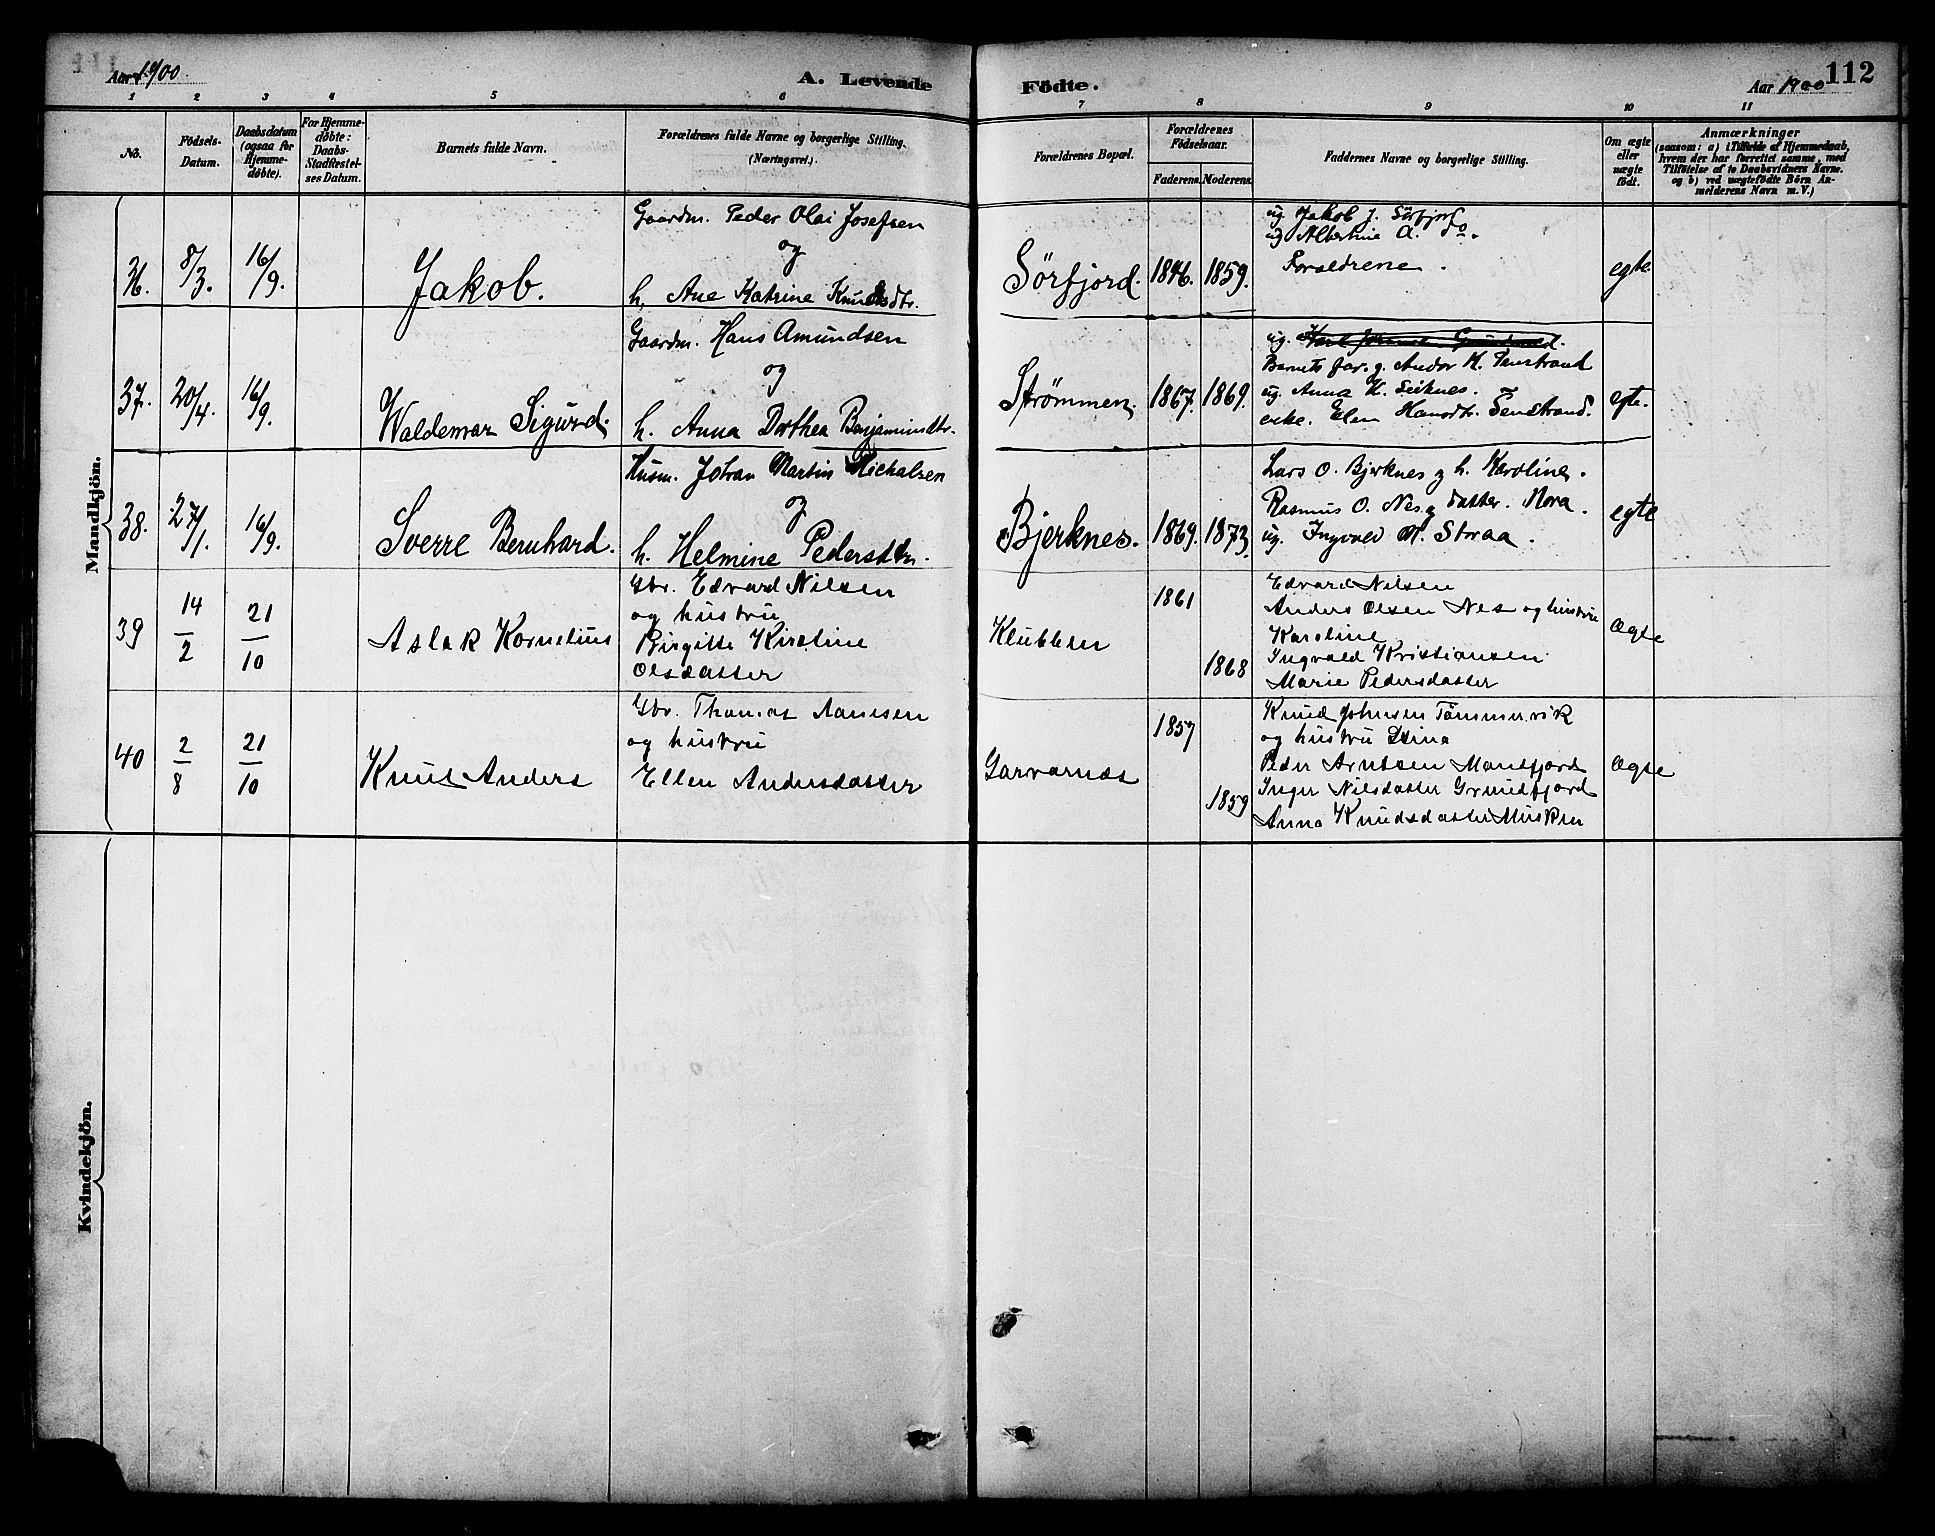 Aar 1900
A. Levende
Födte.
Aar 1900
112
1 2 3 4 5 6 7 8 9 10 11
No.
Födsels-
Datum.
Daabsdatum
(ogsaa for
Hjemme-
döbte).
For Hjemme-
döbte:
Daabs-
Stadfæstel-
ses Datum.
Barnets fulde Navn.
Forældrenes fulde Navne og borgerlige Stilling.
(Næringsvei.)
Forældrenes Bopæl.
Forældrenes
Födselsaar.
Faderens. Moderens.
Faddernes Navne og borgerlige Stilling.
Om ægte
eller
uægte
födt.
Anmærkninger
(saasom: a) i Tilfælde af Hjemmedaab,
hvem der har forrettet samme, med
Tilföielse af to Daabsvidners Navne.
og b) ved uægtefödte Börn An-
melderens Navn m. V.)
Mandkjön.
36. 8/3. 16/9. Jakob.
Gaardm. Peder Olai Josefsen
og
h. Ane Katrine Knudsdtr.
Sörfjord. 1846. 1859.
ug. Jakob J. Sörfjord
ug Albertine A. do.
Forældrene.
egte
37. 20/4. 16/9. Waldemar Sigurd.
Gaardm. Hans Amundsen
og
h. Anna Dorthea Benjaminsdtr.
Strømmen. 1867. 1869.
ug.
Barnets far. g. Andor H. Senstrand
ug. Anna K. Leiknes.
enke. Elen Hansdtr. Senstrand.
egte.
38. 27/1. 16/9. Sverre Bernhard.
Husm. Johan Martin Michalsen
og
h. Helmine Pedersdtr.
Bjerknes. 1869. 1873.
Lars O. Bjerknes g h. Karoline.
Rasmus O. Nes. g datter. Nora.
ug. Ingvald M. Straa.
egte
39 14/2 21/10 Aslak Kornelius
Gbr. Edvard Nilsen
og hustru
Birgitte Kirstine
Olsdatter
Klubben 1861 1868
Edvard Nilsen
Anders Olsen Nes og hustru
Karoline
Ingvald Kristiansen
Marie Pedersdatter
Ægte
40 2/8 21/10 Knut Anders
Gbr. Thomas Aanesen
og hustru
Ellen Andersdatter
Garvarnæs 1857 1859
Knud Johnsen Tömmervik
og hustru Stina
Peder Arntsen Mandfjord
Inger Nilsdatter Grundfjord
Anna Knudsdatter Musken
Ægte
Kvindekjön.